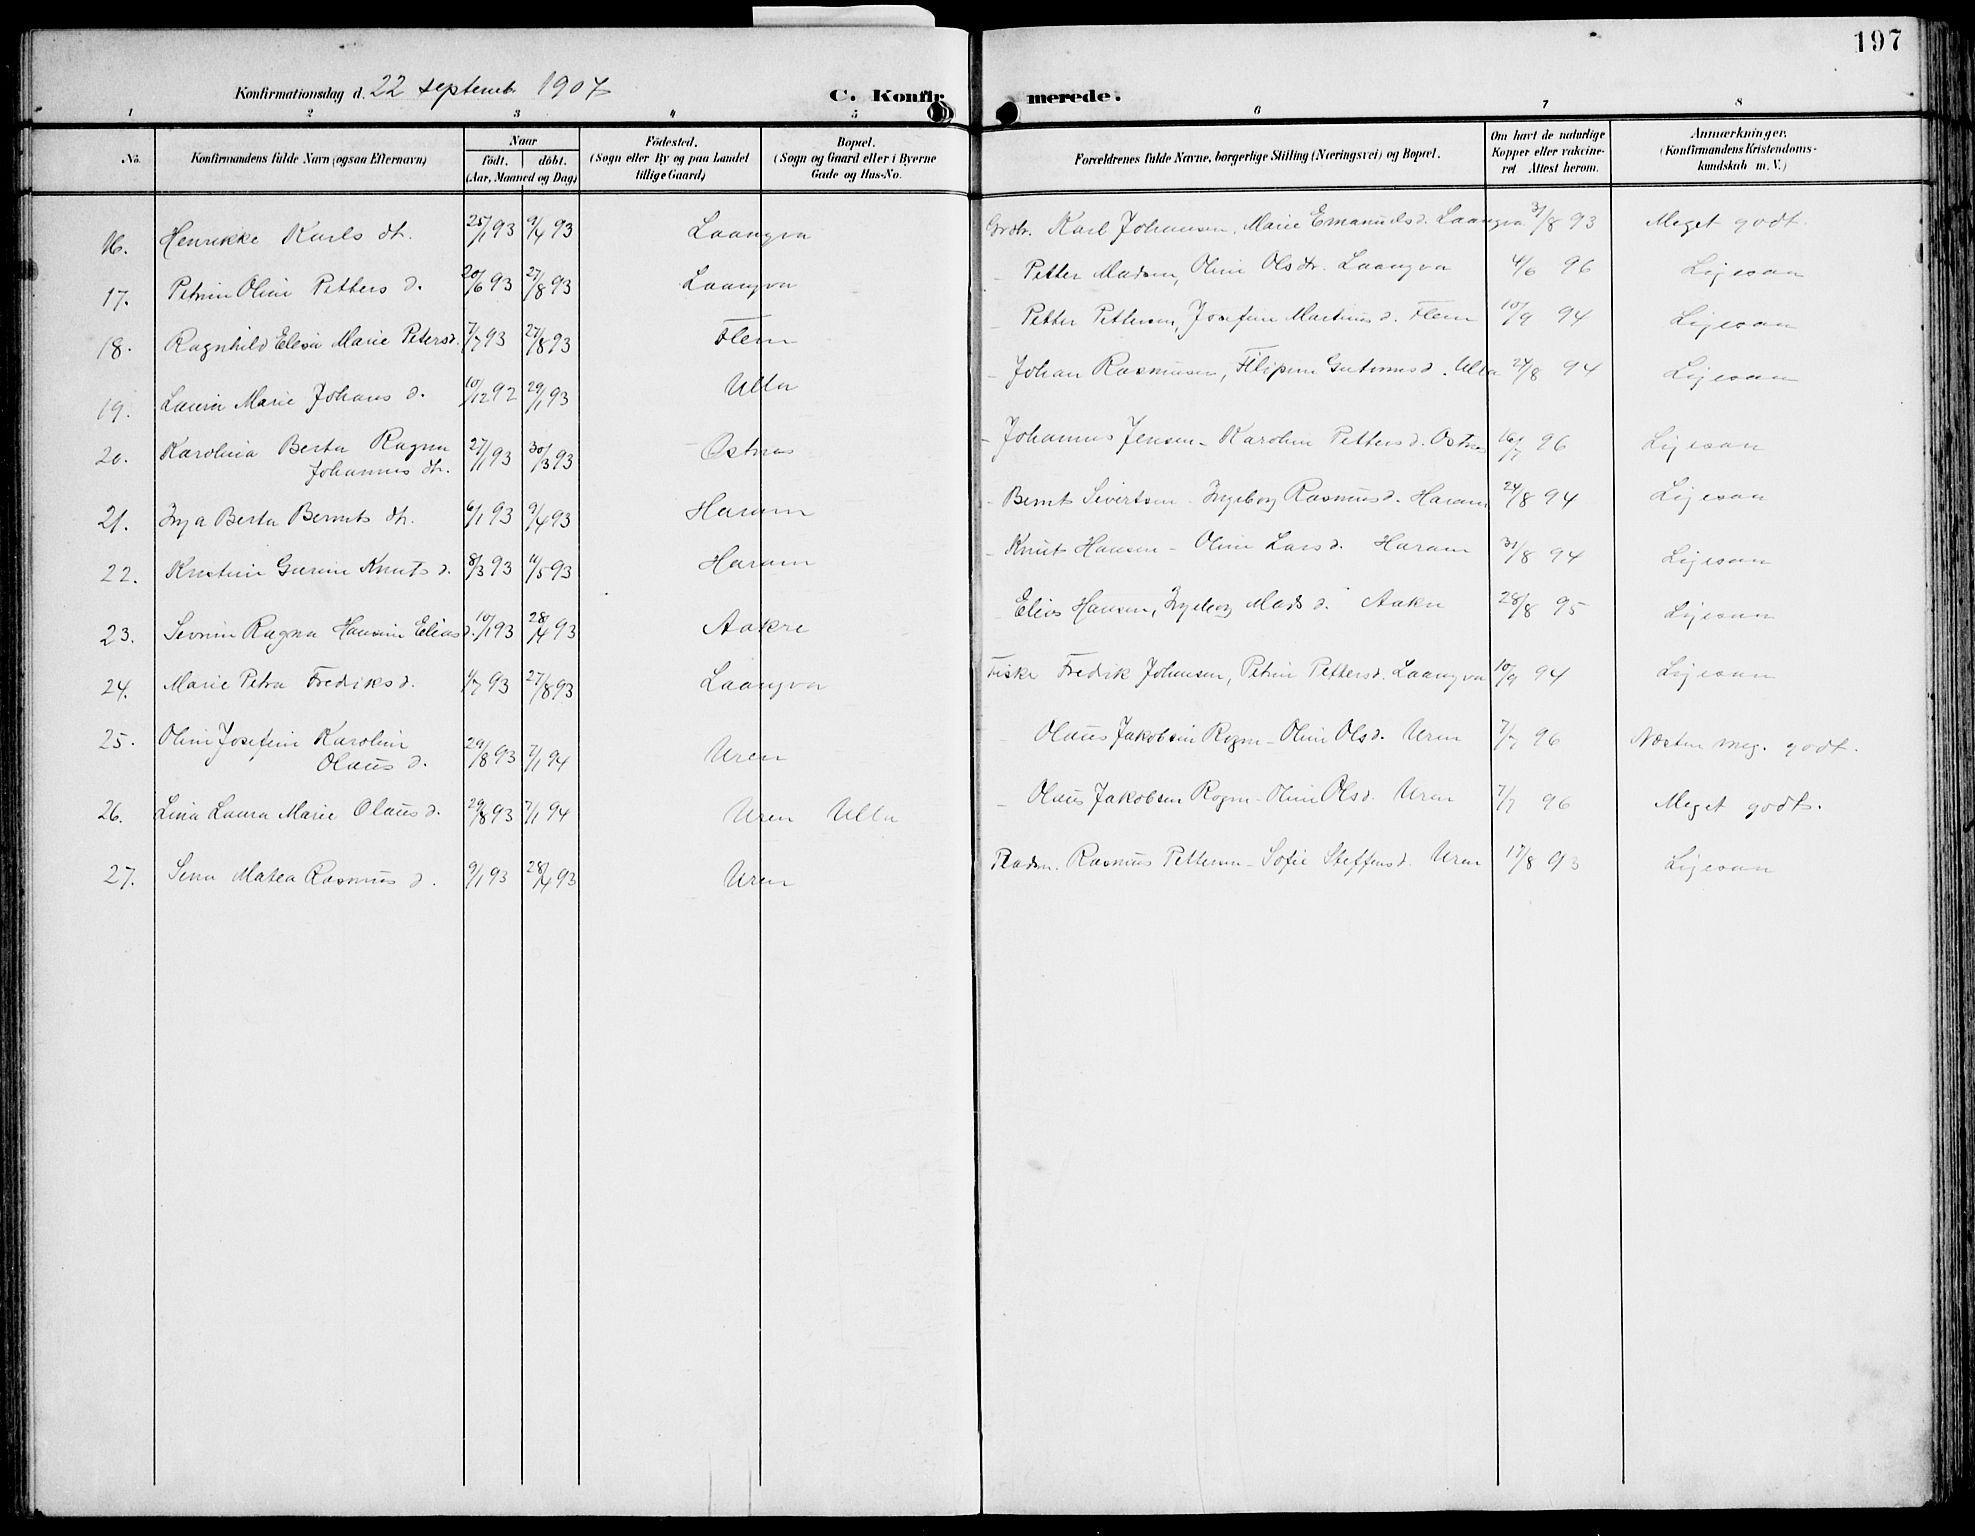 197
Konfirmationsdag d. 22 septemb 1907 C. Konfirmerede.
1 2 3 4 5 6 7 8
No. Konfirmandens fulde Navn (ogsaa Efternavn) Naar født. døbt. (Aar, Maaned og Dag) Fødested. (Sogn eller By og paa Landet tillige Gaard) Bopæl. (Sogn og Gaard eller i Byerne Gade og Hus-No. Forældrenes fulde Navne, borgerlige Stilling (Næringsvei) og Bopæl. Om havt de naturlige Kopper eller vakcineret Attest herom. Anmærkninger. (Konfirmandens Kristendomskundskab m. V.)
16. Henrikke Karls dt. 25/1 93 9/4 93 Laangva Grdbr. Karl Johansen, Marie Emanuels d. Laangva 31/8 93 Meget godt.
17. Petrine Oline Petters d. 20/6 93 27/8 93 Laangva - Petter Madsen, Oline Ols dr. Laangva 4/6 96 Ligesaa
18. Ragnhild Elesa Marie Peters d. 7/7 93 27/8 93 Flem - Petter Pettersen, Josefine Martinus d. Flem 10/9 94 Ligesaa
19. Laura Marie Johans d. 10/12 92 29/1 93 Ulla - Johan Rasmussen, Filipine Guttorms d. Ulla 24/8 94 Ligesaa
20. Karolina Berta Ragna Johannes dt. 27/1 93 30/3 93 Ostnes - Johannes Jensen - Karoline Petters d. Ostnes 16/7 96 Ligesaa
21. Inga Berta Bernts dt. 6/1 93 9/4 93 Haram - Bernt Sivertsen - Ingeborg Rasmus d. Haram 24/8 94 Ligesaa
22. Kristine Gurine Knuts d. 8/3 93 11/5 93 Haram - Knut Hansen - Oline Lars d. Haram 31/8 94 Ligesaa
23. Sevrin Ragna Hansine Elias d. 10/1 93 28/4 93 Aakre Elias Hansen, Ingeborg Mads d. Aakre 28/8 95 Ligesaa
24. Marie Petra Fredriks d. 4/7 93 27/8 93 Laangva Fisker Fredik Johansen, Petrine Petters d. Laangva 10/9 94 Ligesaa
25. Oline Josefine Karoline Olaus d. 29/8 93 7/1 94 Uren - Olaus Jakobsen Rogne - Oline Ols d. Uren 7/7 96 Næsten meg. godt.
26. Lina Laura Marie Olaus d. 29/8 93 7/1 94 Uren Ulla - Olaus Jakobsen Rogne - Oline Ols d. Uren 7/7 96 Meget godt.
27. Sina Matea Rasmus d. 9/1 93 28/4 93 Uren Pladsm. Rasmus Pettersen - Sofie Steffens d. Uren 17/8 93 Ligesaa